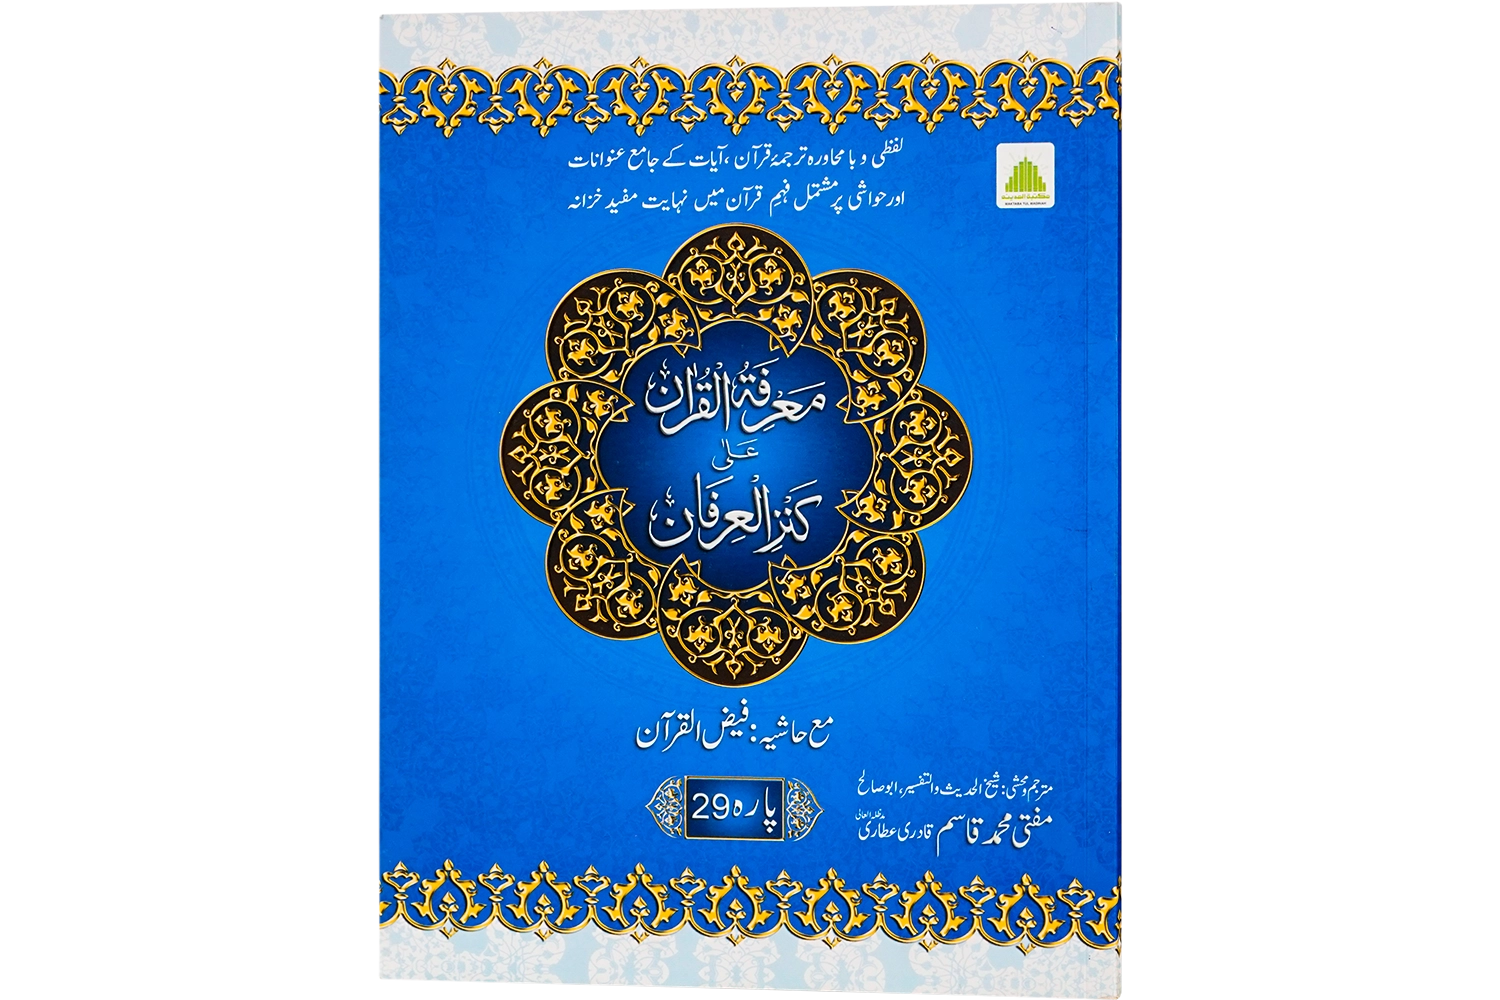 لفظی و با محاورہ ترجمۂ قرآن، آیات کے جامع عنوانات
اور حواشی پر مشتمل فہمِ قرآن میں نہایت مفید خزانہ
مکتبۃ المدینہ
MAKTABA TUL MADINAH
مَعْرِفَۃُ الْقُرْاٰن
عَلٰی
کَنْزِ الْعِرفَان
مع حاشیہ: فیض القرآن
پارہ 29
مترجم و محشی: شیخ الحدیث والتفسیر، ابو صالح
مفتی محمد قاسم قادری عطاری مدظلہ العالی